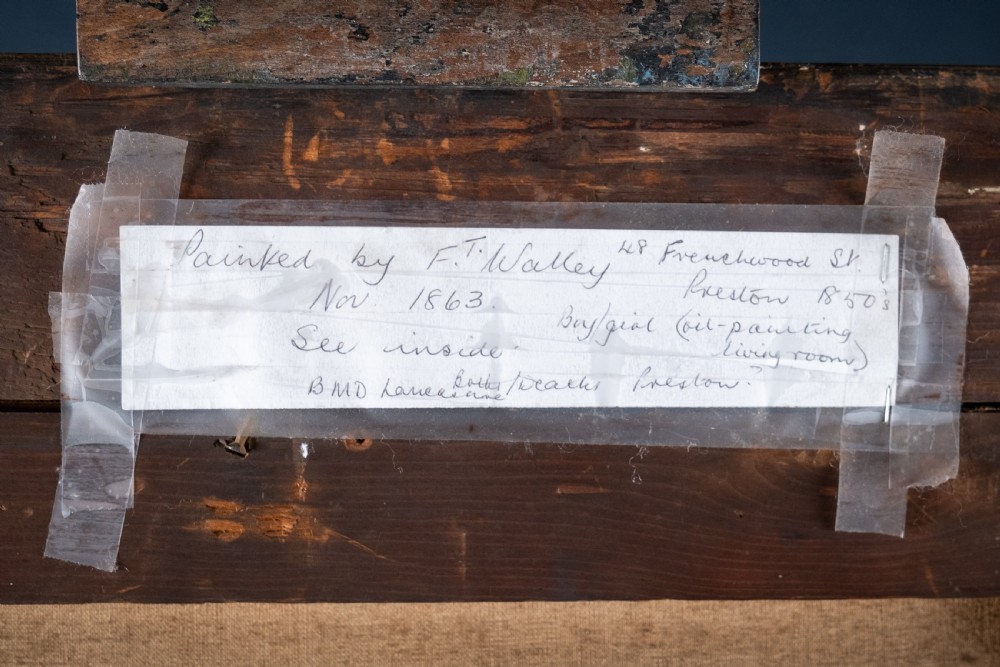 Painted by F.T. Walley 48 Frenchwood St.
Nov 1863. Preston 1850s
Boy/girl (oil-painting
See inside living room)
BMD Lancashire Births/Deaths Preston?